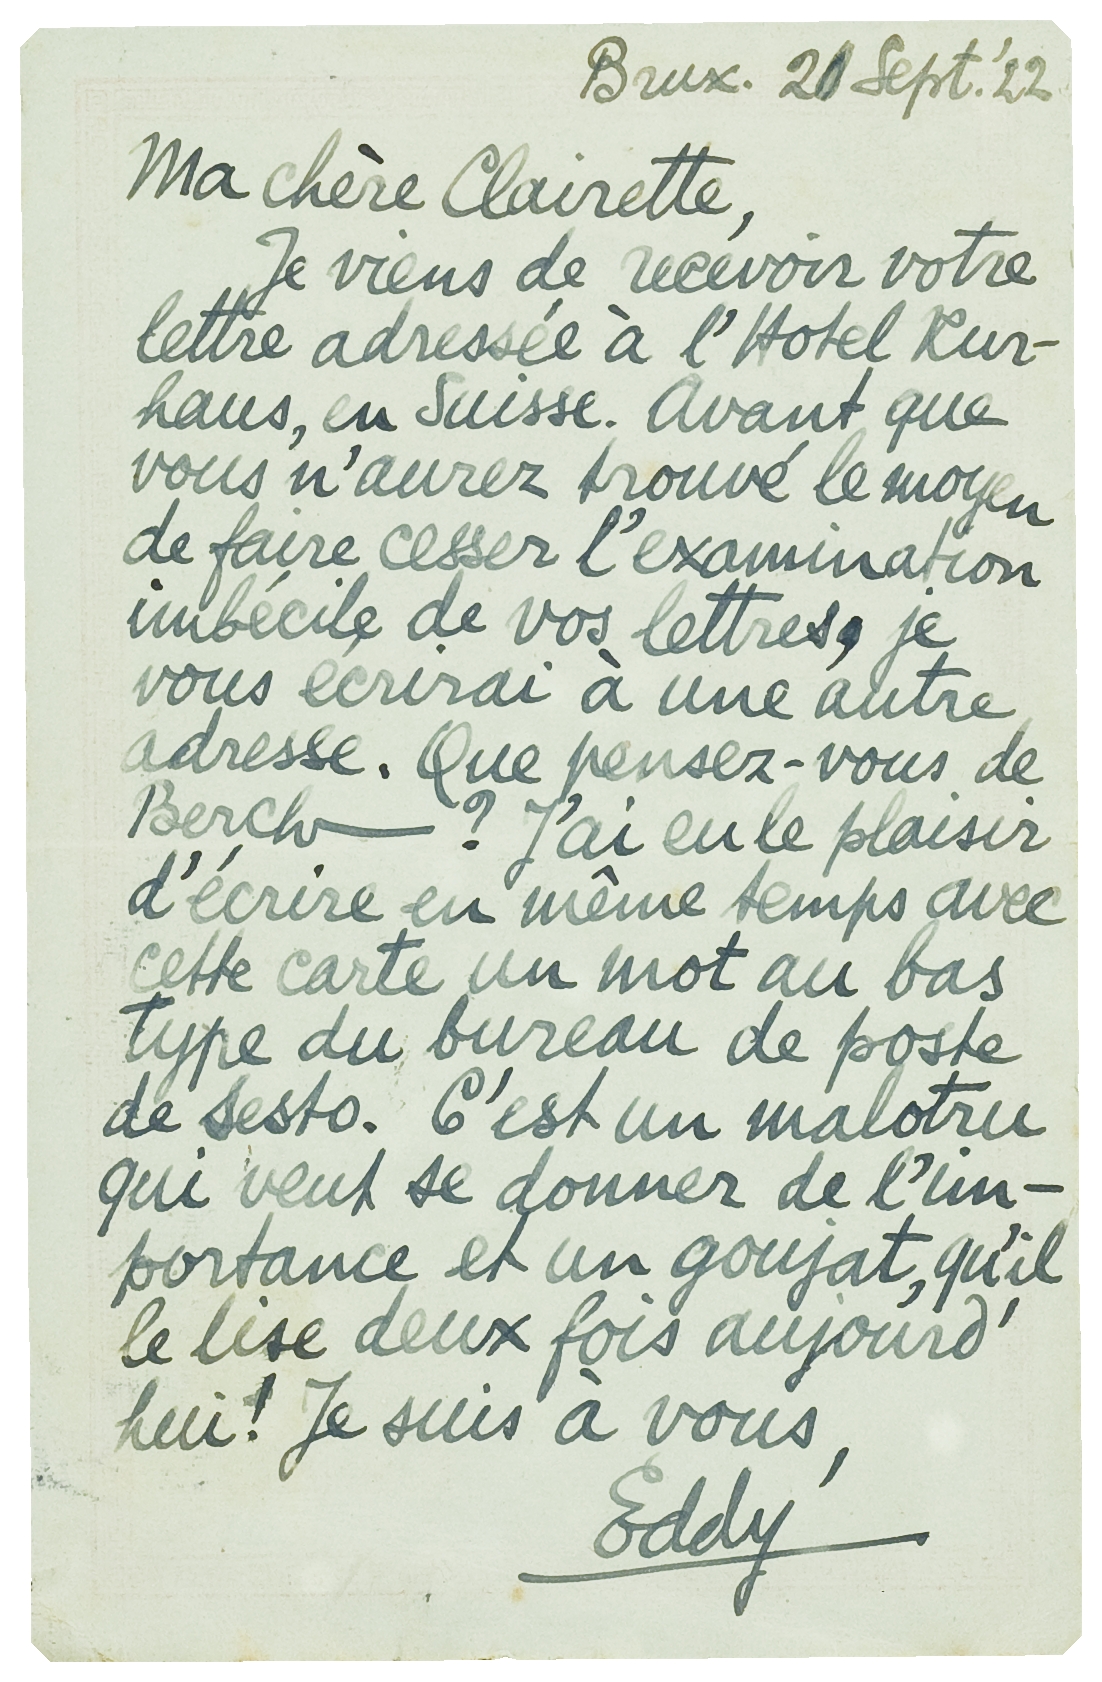 Brux. 21 Sept. '22
Ma chère Clairette,
Je viens de recevoir votre
lettre adressée à l'Hotel Kur-
haus, en Suisse. Avant que
vous n'aurez trouvé le moyen
de faire cesser l'examination
imbécile de vos lettres, je
vous écrirai à une autre
adresse. Que pensez-vous de
Berch—? J'ai eu le plaisir
d'écrire en même temps avec
cette carte un mot au bas
type du bureau de poste
de Sesto. C'est un malotru
qui veut se donner de l'im-
portance et un goujat, qu'il
le lise deux fois aujourd'
hui! Je suis à vous,
Eddy